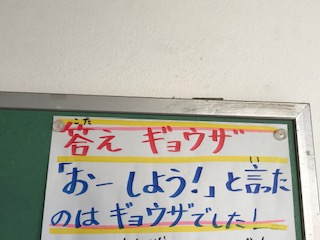 答え ギョウザ
「おーしよう!」と言った
のはギョウザでした!